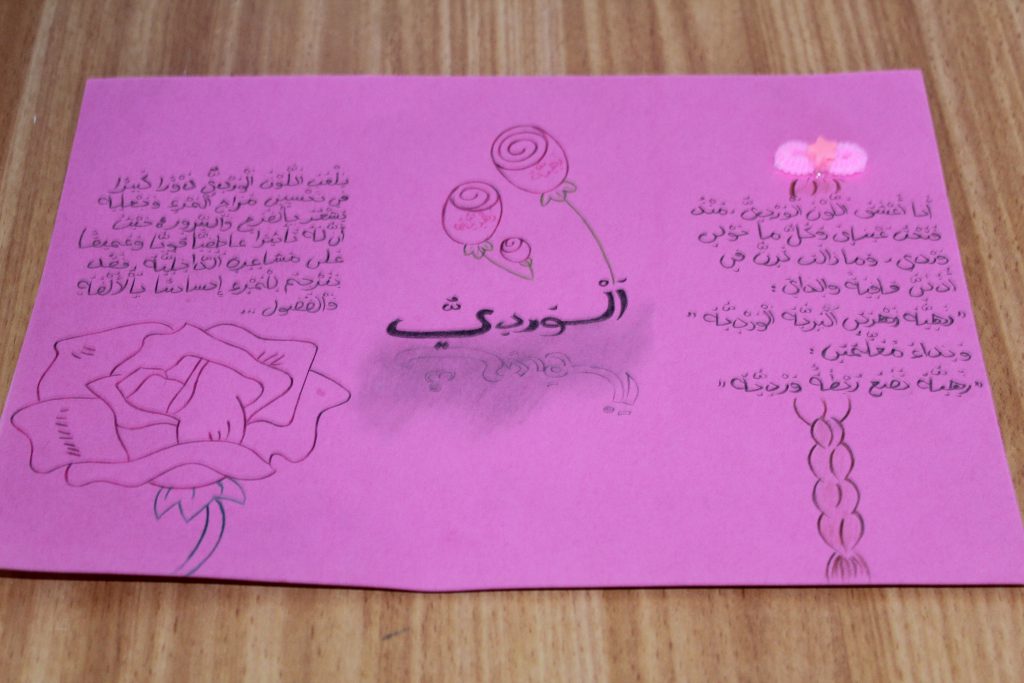 أنا أعْشق اللّوْن الْوَرْديّ، مُنْذُ
فتحْت عيْناي فكُلّ ما حوْلي
وردي، وما زالت ترنّ في
أذنيّ
"زهيّة زهْرتي الْبريّة الْورْديّة"
ونداء مُعلّمتي:
"زهيّة تضع ربْطة ورْديّة"
اَلْورديّ
يلْعب اللّوْن الْورْديّ دوْرًا كبيرًا
في تحْسين مزاج الْمرْء وجعْله
يشْعر بالْفرح والسّرور، حيْث
أنّ له تأثيرًا عاطفيًّا قويًّا وعميقًا
على مشاعره الدّاخليّة، فقد
يترْجم للْمرْء إحساسًا بالْألْفة
والْفضول ...